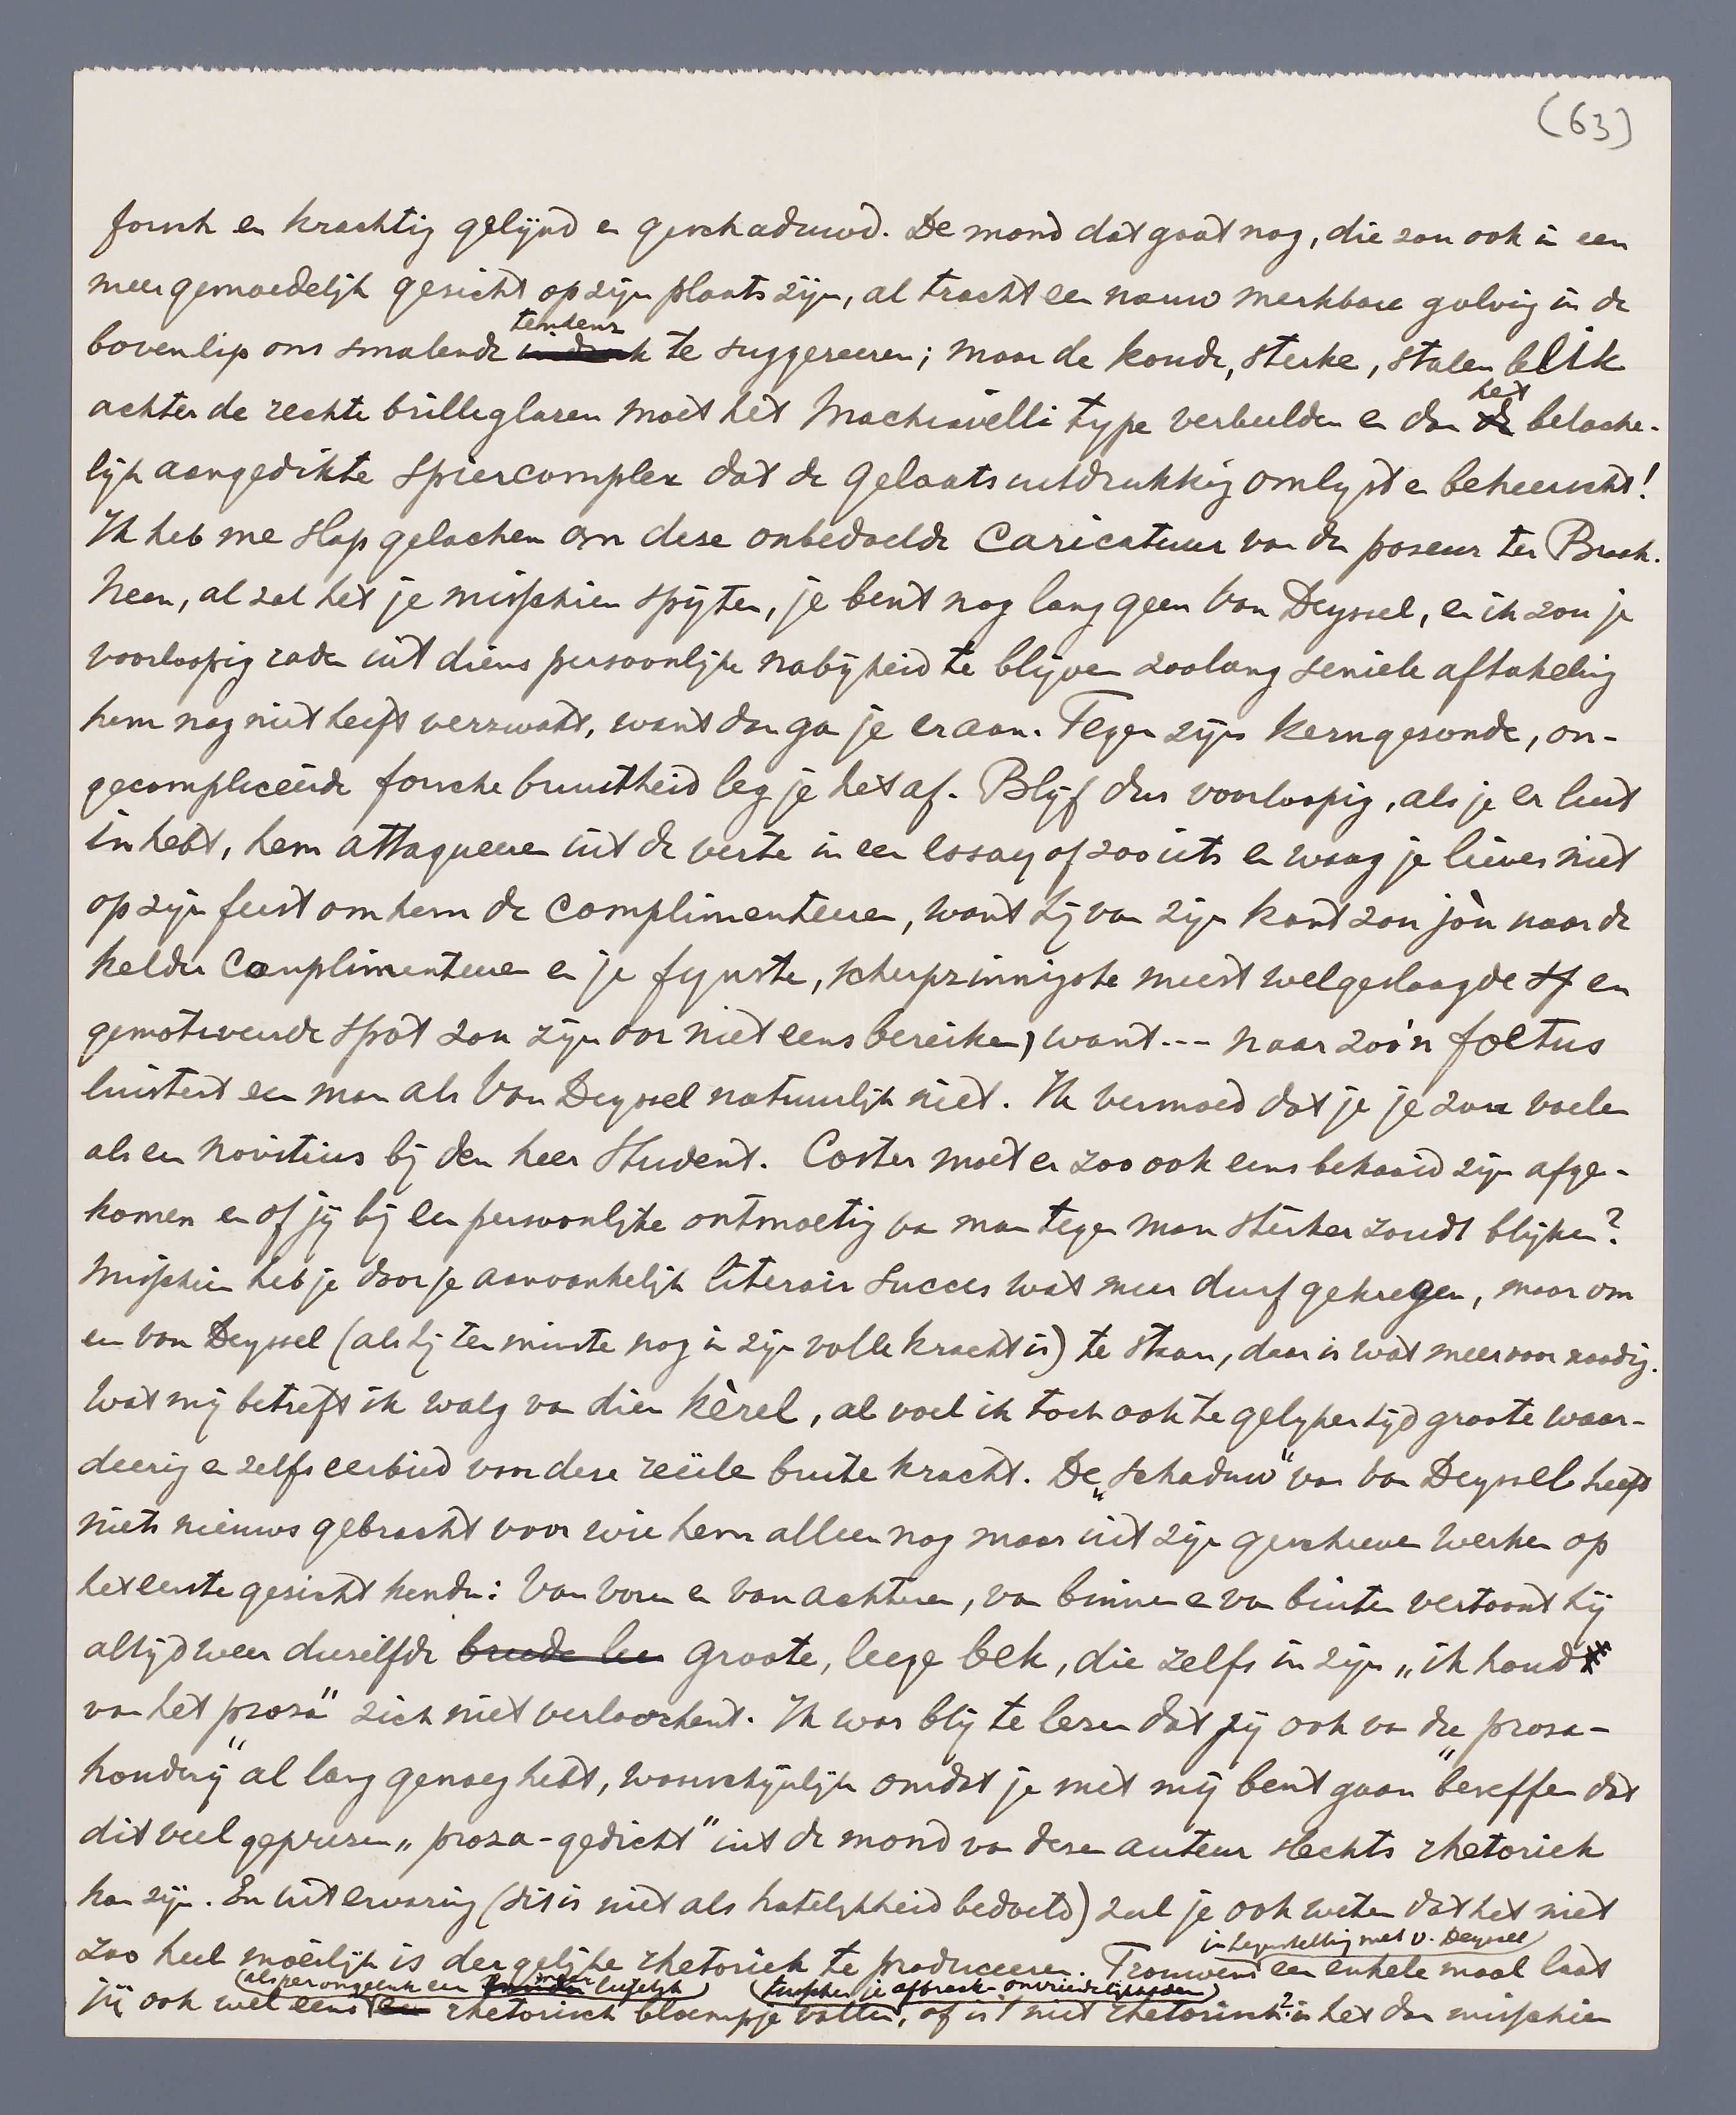 (63)
forsch en krachtig gelijnd en geschaduwd. De mond dat gaat nog, die zou ook in een
meer gemoedelijk gezicht op zijn plaats zijn, al tracht een nauw merkbare golving in de
bovenlip ons smalende tendens te suggereeren; maar de koude, sterke, stalen blik
achter de rechte brilleglazen moet het Machiavelli type verbeelden en dan het belache-
lijk aangedikte spiercomplex dat de gelaatsuitdrukking omlijst en beheerscht!
Ik heb me slap gelachen om deze onbedoelde caricatuur van den poseur ter Braak.
Neen, al zal het je misschien spijten, je bent nog lang geen Van Deyssel, en ik zou je
voorloopig raden uit diens persoonlijke nabijheid te blijven zoolang seniele aftakeling
hem nog niet heeft verzwakt, want dan ga je eraan. Tegen zijn kerngezonde, on-
gecompliceerde forsche bruutheid leg je het af. Blijf dus voorloopig, als je er lust
in hebt, hem attaqueeren uit de verte in een essay of zooiets en waag je liever niet
op zijn feest om hem de complimenteeren, want hij van zijn kant zou jòu naar de
kelder complimenteeren en je fijnste, scherpzinnigste meest welgeslaagde en
gemotiveerde spot zou zijn oor niet eens bereiken, want --- naar zoo'n foetus
luistert een man als Van Deyssel natuurlijk niet. Ik vermoed dat je je zou voelen
als een novitius bij den heer Student. Coster moet er zoo ook eens bekaaid zijn afge-
komen en of jij bij een persoonlijke ontmoeting van man tegen man sterker zoudt blijken?
Misschien heb je door je aanvankelijk literair succes wat meer durf gekregen, maar om
een van Deyssel (als hij ten minste nog in zijn volle kracht is) te staan, daar is wat meer voor noodig.
Wat mij betreft ik walg van dien kèrel, al voel ik toch ook te gelijker tijd groote waar-
deering en zelfs eerbied voor deze reëele brute kracht. De „schaduw" van van Deyssel heeft
niets nieuws gebracht voor wie hem alleen nog maar uit zijn geschreven werken op
het eerste gezicht kende: Van voren en van achteren, van binnen en van buiten vertoont hij
altijd weer diezelfde groote, leege bek, die zelfs in zijn „ik houd
van het proza" zich niet verloochent. Ik was blij te lezen dat jij ook van die „proza-
houderij" al lang genoeg hebt, waarschijnlijk omdat je met mij bent gaan beseffen dat
dit veel geprezen „proza-gedicht" uit de mond van dezen auteur slechts rhetoriek
kan zijn. En uit ervaring (dit is niet als hatelijkheid bedoeld) zul je ook weten dat het niet
zoo heel moeilijk is dergelijke rhetoriek te produceeren. Trouwens in tegenstelling met v. Deyssel een enkele maal laat
jij ook wel eens (als per ongeluk een maar liefelijk) rhetorisch bloempje vallen (tusschen je afbraak-onvriendelijkheden), of is 't niet rhetorisch? is het dan misschien